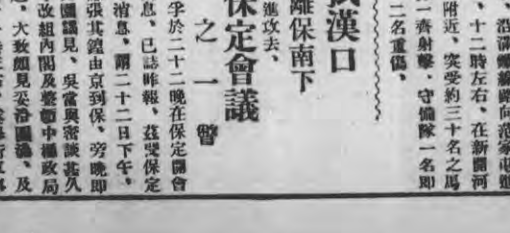 沿滿鐵線路向范家屯進
、十二時左右、在新開河
附近、突受約三十名之馬
一齊射擊、守備隊一名卽
二名重傷、
武漢口
離保南下
進攻去、
保定會議
之一瞥
乎於二十二晚在保定開會
息、已誌昨報、茲畧保定
消息、謂二十二日下午、
張其鍠由京到保、旁晚卽
議見、吳當與密談甚久
改組內閣及整頓中樞政局
、大致頗見妥洽圓滿、及